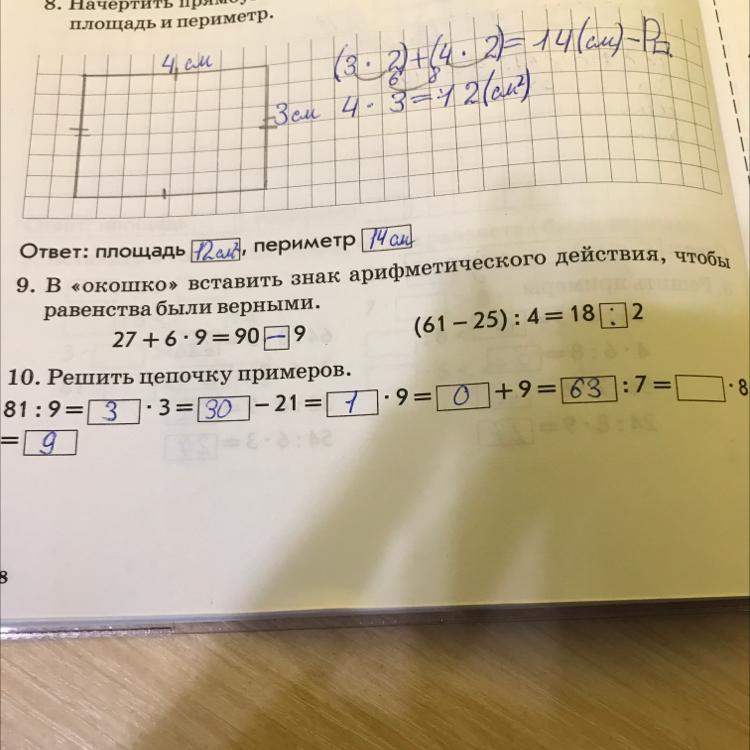 8. Начертить
площадь и периметр.
4 см
(3 · 2)+(4 · 2)= 14(см)-P
6 8
3см 4 · 3 = 12(см²)
Ответ: площадь 12см², периметр 14см
9. В «окошко» вставить знак арифметического действия, чтобы
равенства были верными.
27 + 6 · 9 = 90 − 9 (61 − 25) : 4 = 18 : 2
10. Решить цепочку примеров.
81 : 9 = 3 · 3 = 30 − 21 = 1 · 9 = 0 + 9 = 63 : 7 = · 8
= 9
8